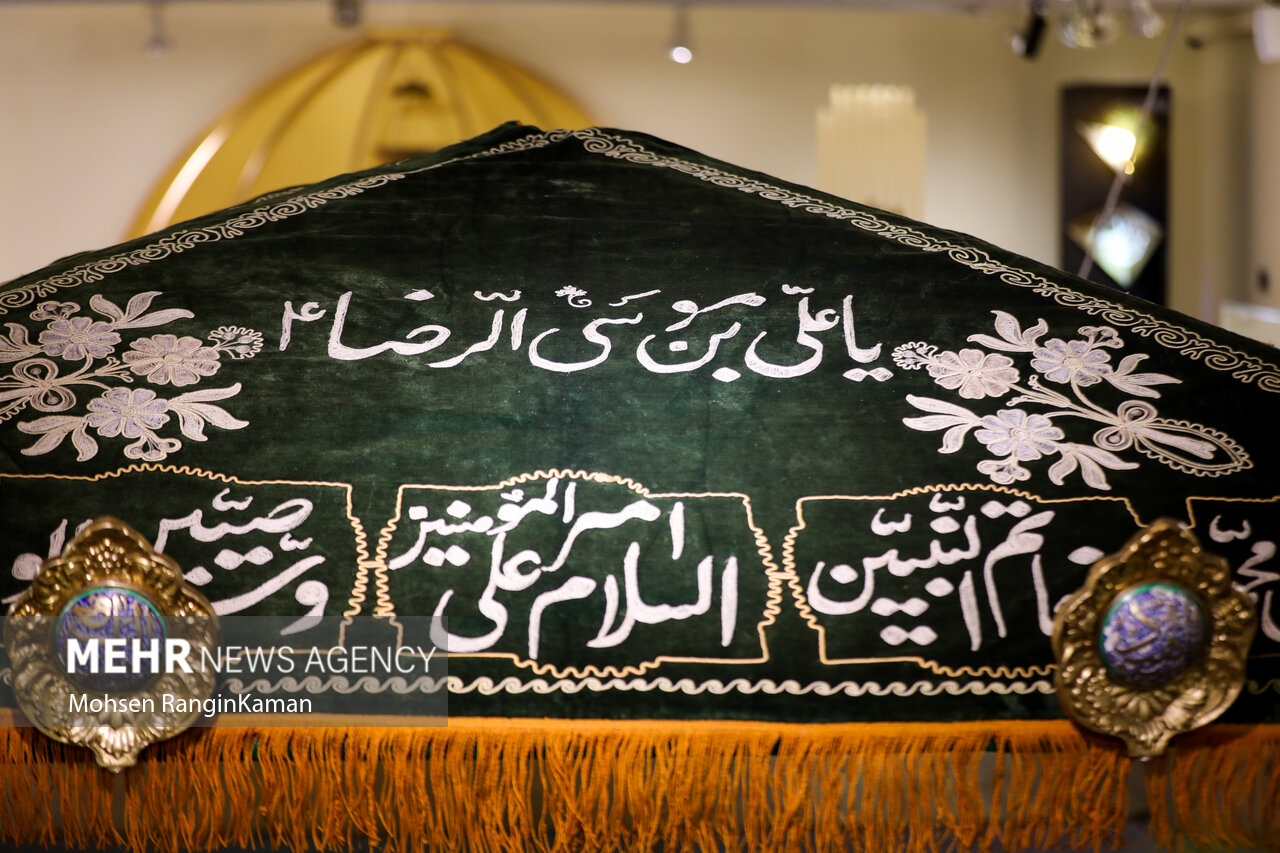 یا علی بن موسی الرضا ع
خاتم النبیین
السلام علی امیر المومنین
وصیین
MEHR NEWS AGENCY
Mohsen RanginKaman